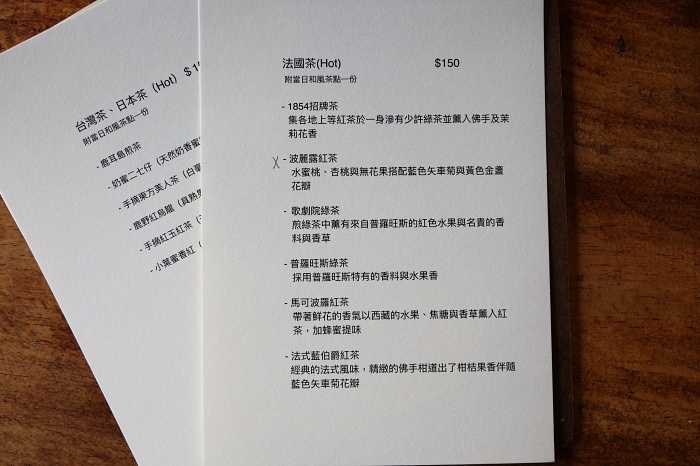 法國茶(Hot) $150
附當日和風茶點一份
- 1854招牌茶
集各地上等紅茶於一身滲有少許綠茶並薰入佛手及茉
莉花香
X - 波麗露紅茶
水蜜桃、杏桃與無花果搭配藍色矢車菊與黃色金盞
花瓣
- 歌劇院綠茶
煎綠茶中薰有來自普羅旺斯的紅色水果與名貴的香
料與香草
- 普羅旺斯綠茶
採用普羅旺斯特有的香料與水果香
- 馬可波羅紅茶
帶著鮮花的香氣以西藏的水果、焦糖與香草薰入紅
茶，加蜂蜜提味
- 法式藍伯爵紅茶
經典的法式風味，精緻的佛手柑道出了柑桔果香伴隨
藍色矢車菊花瓣
台灣茶、日本茶（Hot）$
附當日和風茶點一份
- 鹿耳島煎茶
- 奶蜜二七仔（天然奶香蜜
- 手摘東方美人茶（白毫
- 鹿野紅烏龍（具熟
- 手摘紅玉紅茶（
- 小葉蜜香紅（